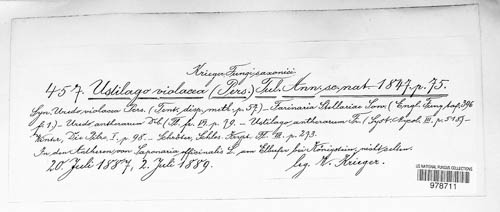 Krieger Fungi saxonici
457. Ustilago violacea (Pers.) Tul. Ann. sc. nat. 1847. p. 75.
Syn. Uredo violacea Pers. (Tent. disp. meth. p. 57.) – Farinaria Stellariae Sow. (Engl. Fung. taf. 396
f. 1.) – Uredo antherarum DC. (Fl. fr. VI. p. 79. – Ustilago antherarum Fr. (Syst. mycol. III. p. 518) –
Winter, Die Pilze I. p. 98. – Schröter, Schles. Krypt. Fl. III. p. 273.
In den Antheren von Saponaria officinalis L. am Elbufer bei Königstein, nicht selten.
20. Juli 1887, 2. Juli 1889. leg. W. Krieger.
US NATIONAL FUNGUS COLLECTIONS
978711